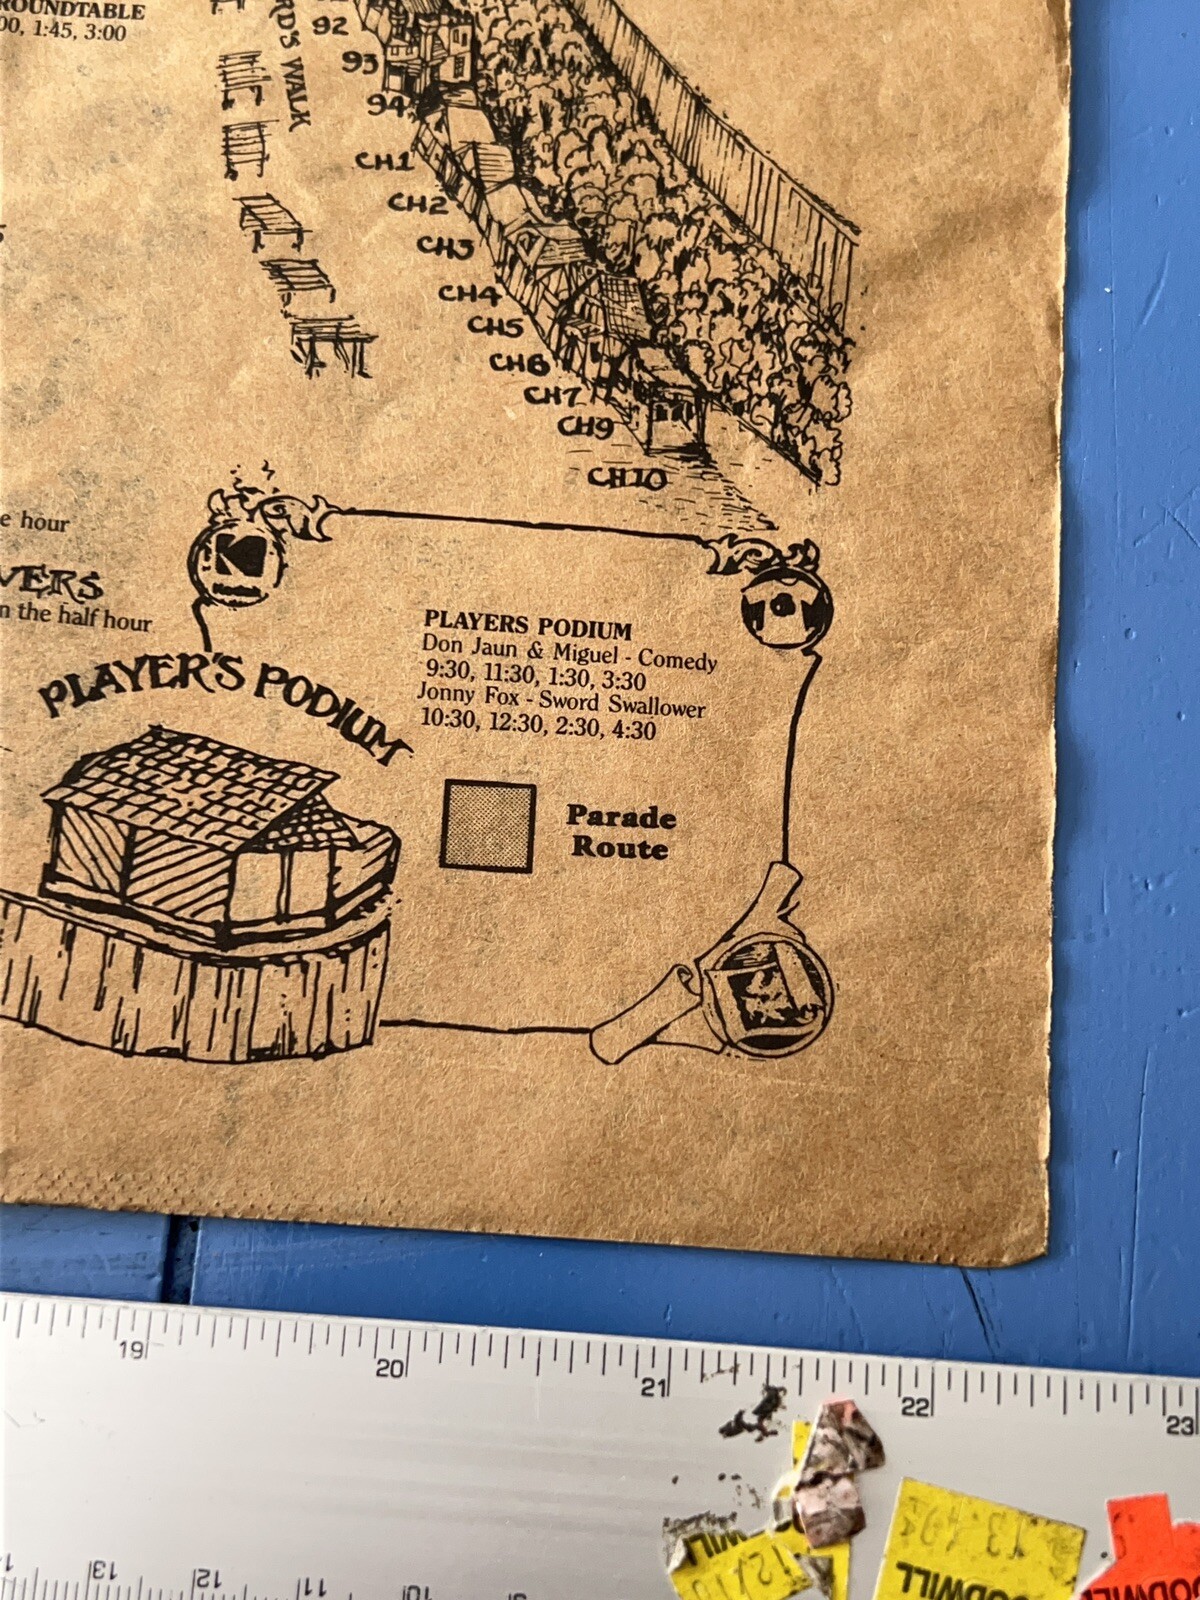 ROUNDTABLE
00, 1:45, 3:00
WALK
92
93
94
CH1
CH2
CH3
CH4
CH5
CH6
CH7
CH9
CH10
e hour
VERS
n the half hour
Kodak
PLAYER'S PODIUM
PLAYERS PODIUM
Don Jaun & Miguel - Comedy
9:30, 11:30, 1:30, 3:30
Jonny Fox - Sword Swallower
10:30, 12:30, 2:30, 4:30
Parade
Route
19 20 21 22 23
13 12 11 10